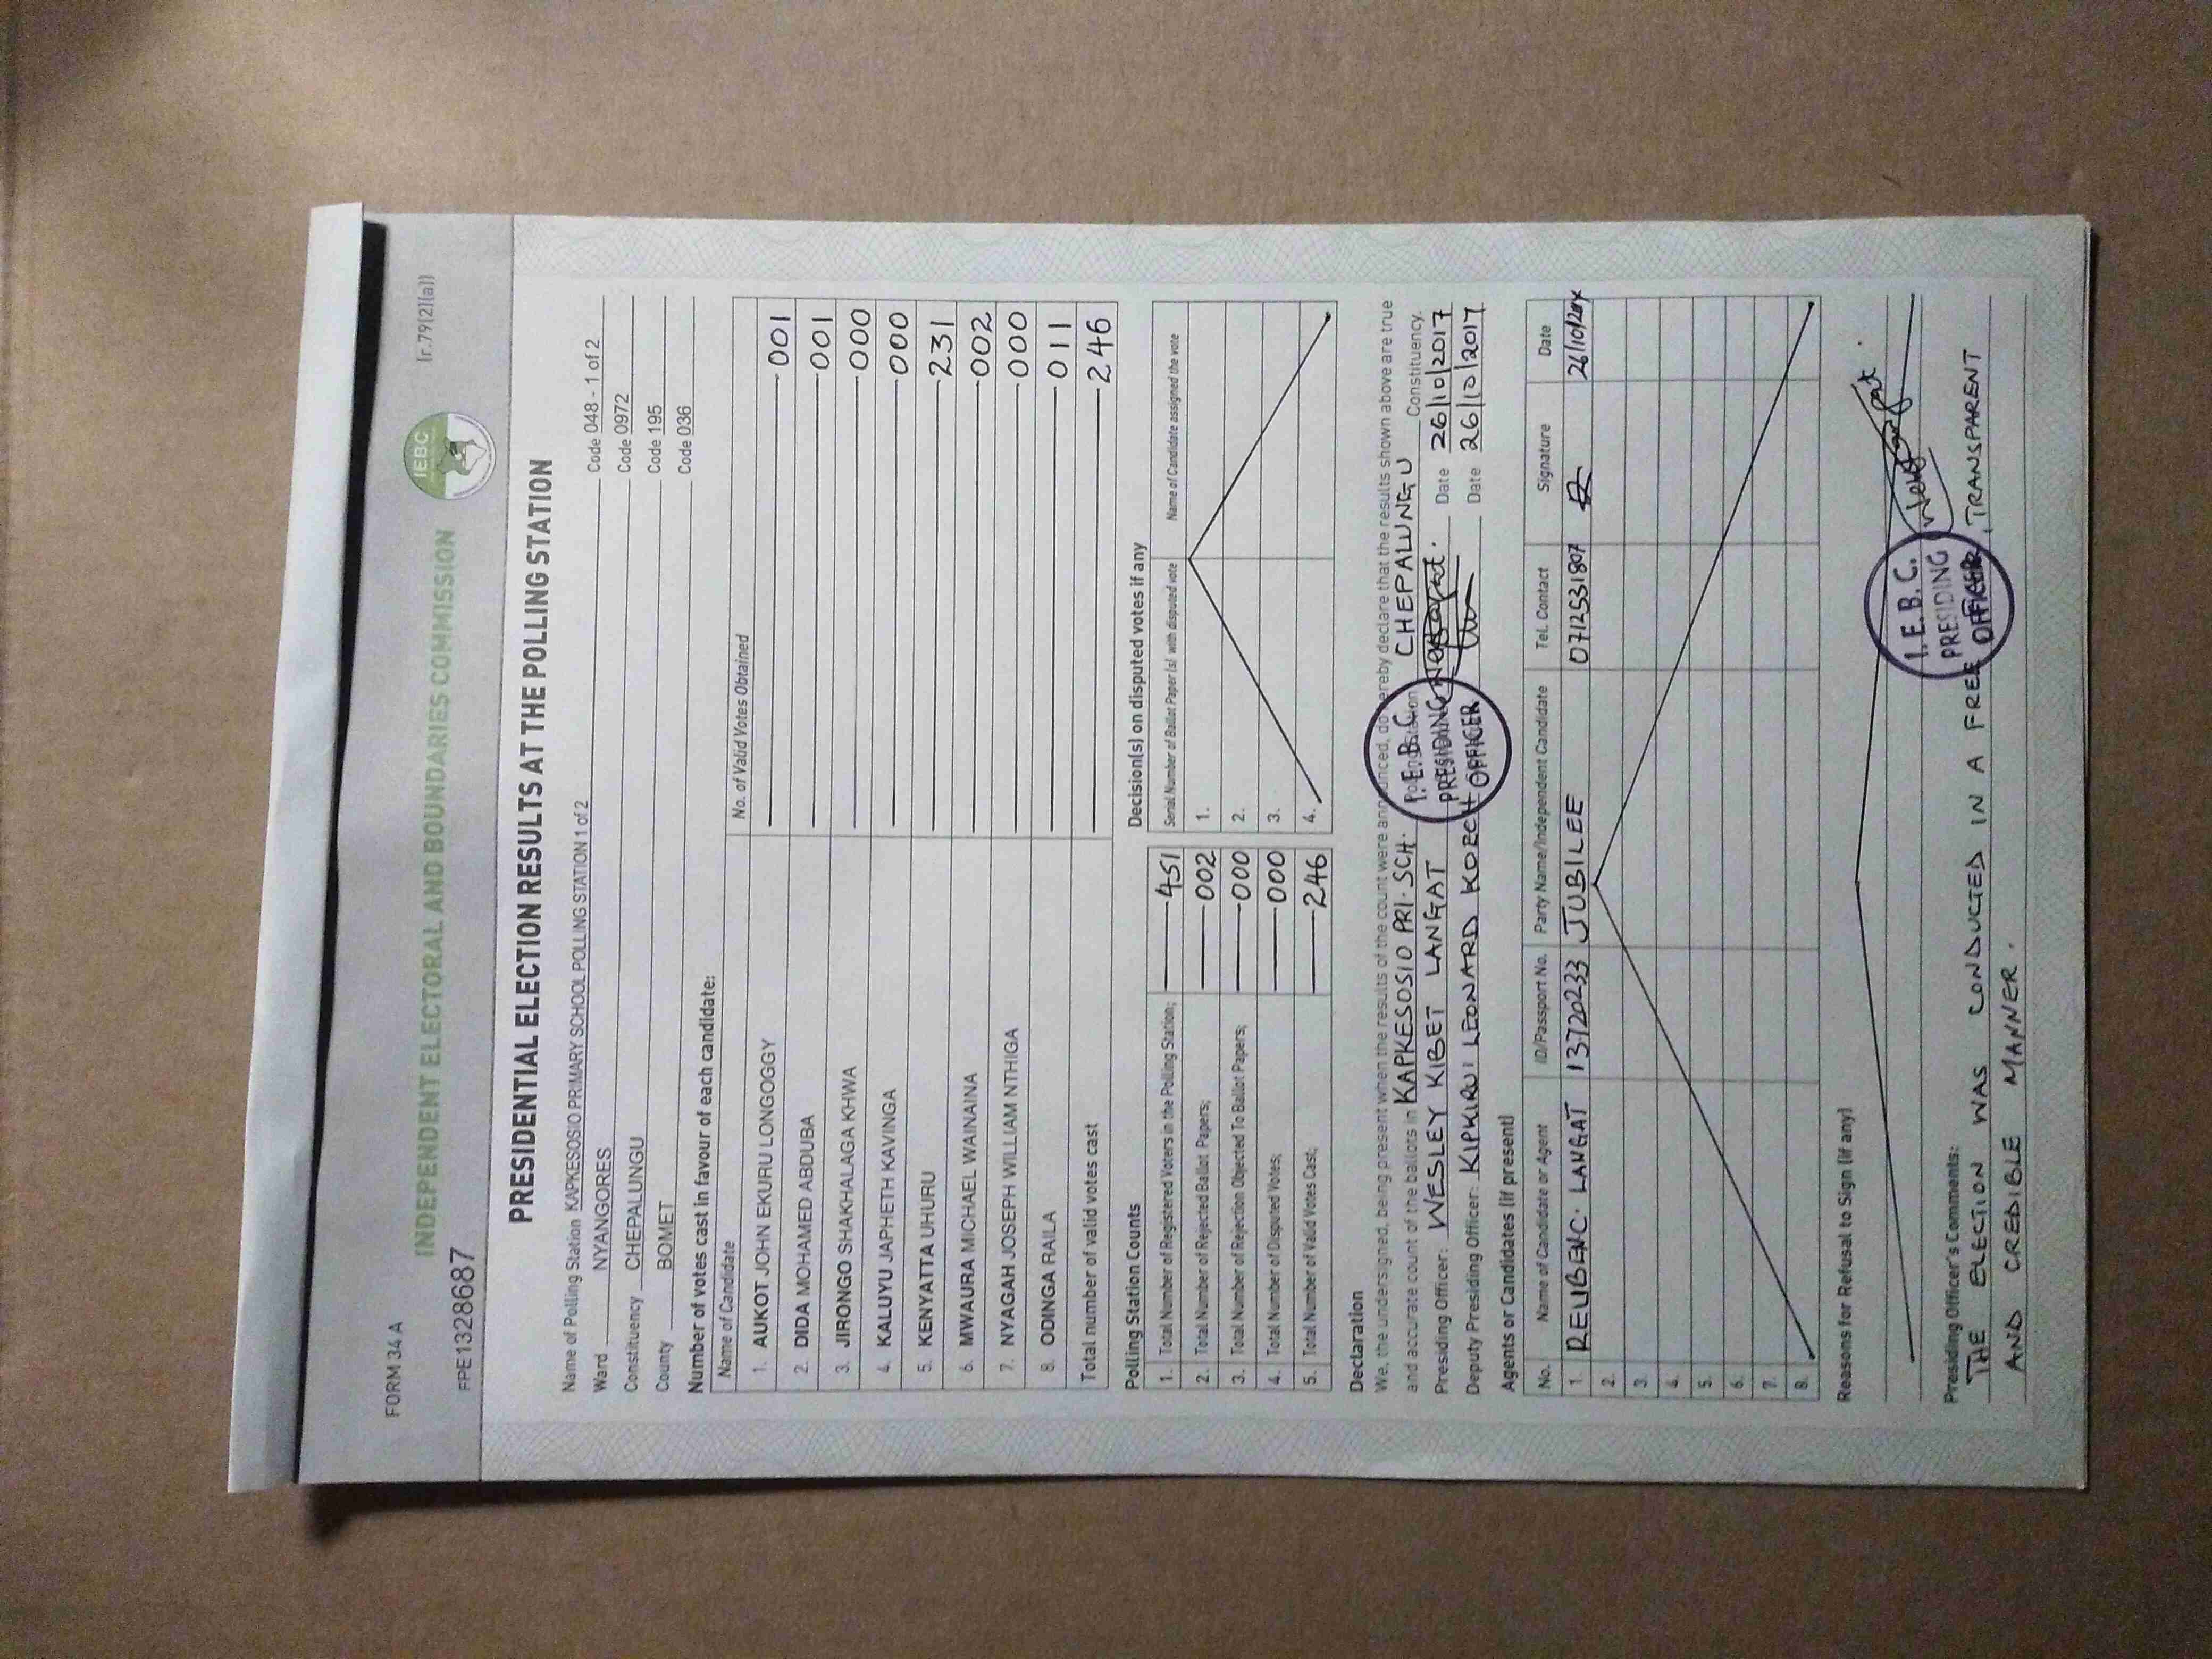 FORM 34 A
INDEPENDENT ELECTORAL AND BOUNDARIES COMMISSION
IEBC
(r.79(2)(a))
FPE1328687
PRESIDENTIAL ELECTION RESULTS AT THE POLLING STATION
Name of Polling Station KAPKESOSIO PRIMARY SCHOOL POLLING STATION 1 of 2 Code 048 - 1 of 2
Ward NYANGORES Code 0972
Constituency CHEPALUNGU Code 195
County BOMET Code 036
Number of votes cast in favour of each candidate:
Name of Candidate No. of Valid Votes Obtained
1. AUKOT JOHN EKURU LONGOGGY 001
2. DIDA MOHAMED ABDUBA 001
3. JIRONGO SHAKHALAGA KHWA 000
4. KALUYU JAPHETH KAVINGA 000
5. KENYATTA UHURU 231
6. MWAURA MICHAEL WAINAINA 002
7. NYAGAH JOSEPH WILLIAM NTHIGA 000
8. ODINGA RAILA 011
Total number of valid votes cast 246
Polling Station Counts
1. Total Number of Registered Voters in the Polling Station; 451
2. Total Number of Rejected Ballot Papers; 002
3. Total Number of Rejection Objected To Ballot Papers; 000
4. Total Number of Disputed Votes; 000
5. Total Number of Valid Votes Cast; 246
Decision(s) on disputed votes if any
Serial Number of Ballot Paper (s) with disputed vote Name of Candidate assigned the vote
1.
2.
3.
4.
Declaration
We, the undersigned, being present when the results of the count were announced, do hereby declare that the results shown above are true
and accurate count of the ballots in KAPKESOSIO PRI. SCH. Polling Station CHEPALUNGU Constituency.
Presiding Officer: WESLEY KIBET LANGAT Date 26/10/2017
Deputy Presiding Officer: KIPKIRUI LEONARD KOECH Date 26/10/2017
I.E.B.C.
PRESIDING
OFFICER
Agents or Candidates (if present)
No. Name of Candidate or Agent ID/Passport No. Party Name/Independent Candidate Tel. Contact Signature Date
1. REUBENC. LANGAT 13720233 JUBILEE 0712531807
2.
3.
4.
5.
6.
7.
8.
Reasons for Refusal to Sign (if any)
I.E.B.C.
PRESIDING
OFFICER
Presiding Officer's Comments:
THE ELECTION WAS CONDUCTED IN A FREE, TRANSPARENT
AND CREDIBLE MANNER.